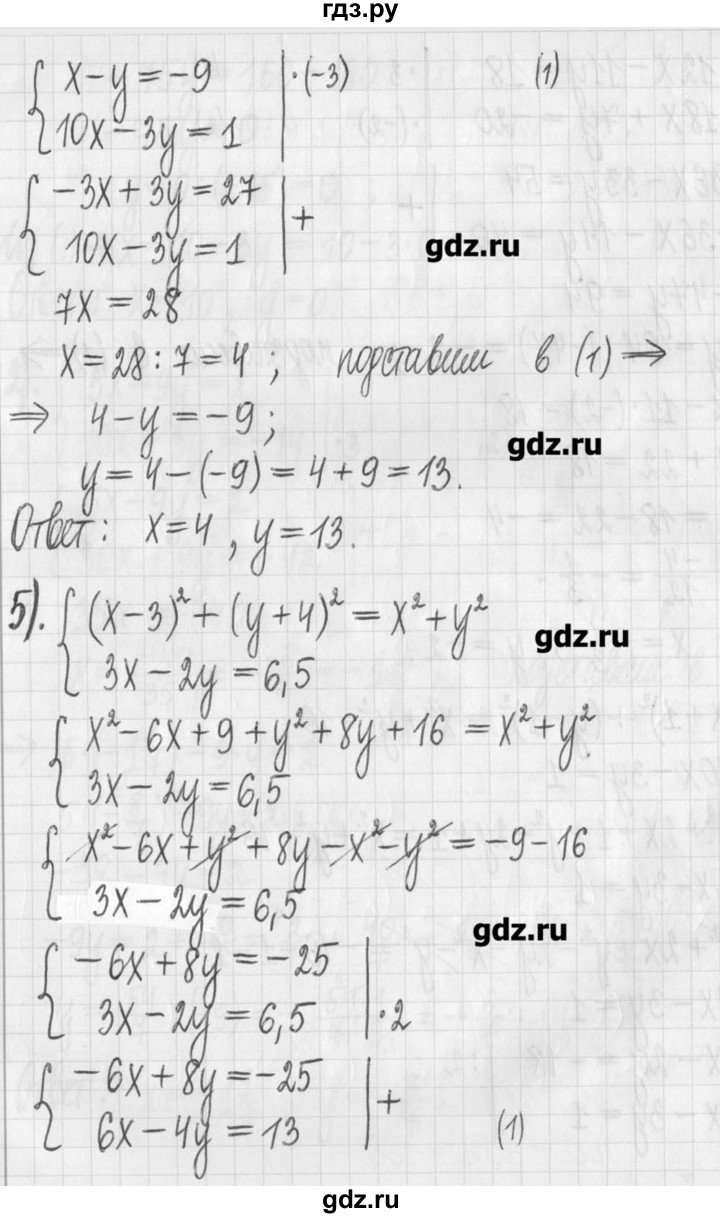 гдз.ру
x - y = -9 | · (-3) (1)
10x - 3y = 1
-3x + 3y = 27 | +
10x - 3y = 1
gdz.ru
7x = 28
x = 28 : 7 = 4 ; подставим в (1) ⇒
⇒ 4 - y = -9 ;
gdz.ru
y = 4 - (-9) = 4 + 9 = 13.
Ответ: x = 4 , y = 13.
5). (x - 3)² + (y + 4)² = x² + y²
gdz.ru
3x - 2y = 6,5
x² - 6x + 9 + y² + 8y + 16 = x² + y²
3x - 2y = 6,5
x² - 6x + y² + 8y - x² - y² = -9 - 16
3x - 2y = 6,5
gdz.ru
-6x + 8y = -25
3x - 2y = 6,5 | · 2
-6x + 8y = -25 | +
6x - 4y = 13 (1)
gdz.ru